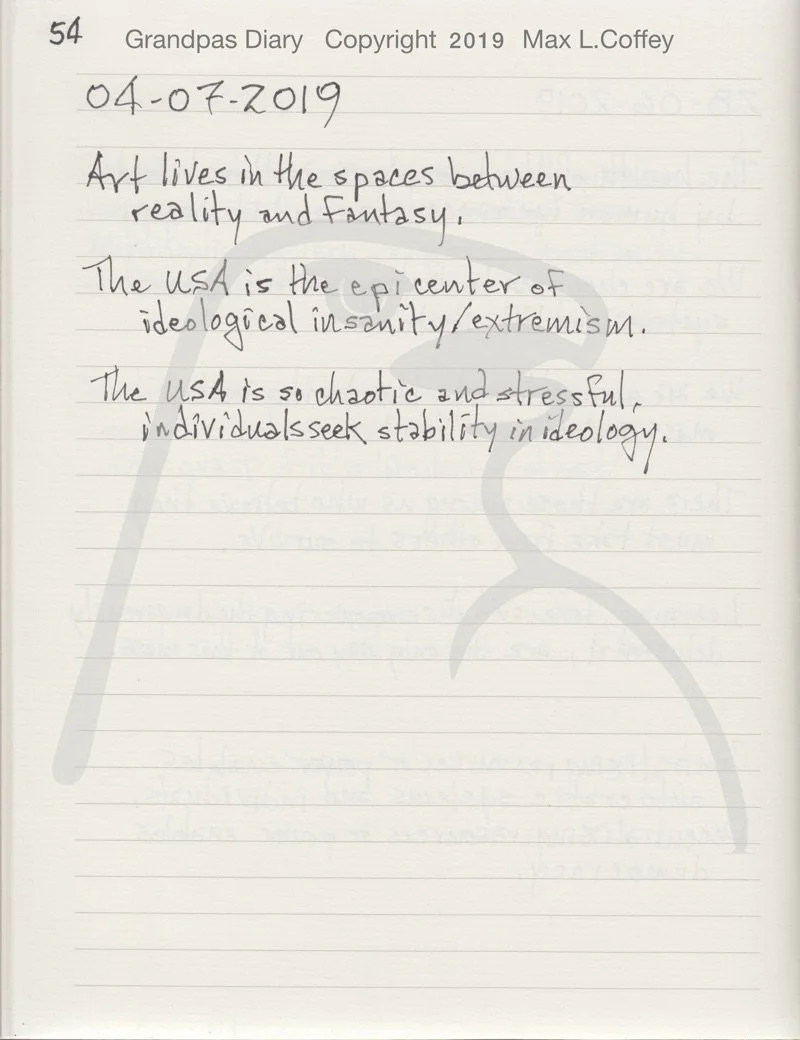 54 Grandpas Diary Copyright 2019 Max L.Coffey
04-07-2019
Art lives in the spaces between
reality and Fantasy.
The USA is the epicenter of
ideological insanity/extremism.
The USA is so chaotic and stressful,
individuals seek stability in ideology.